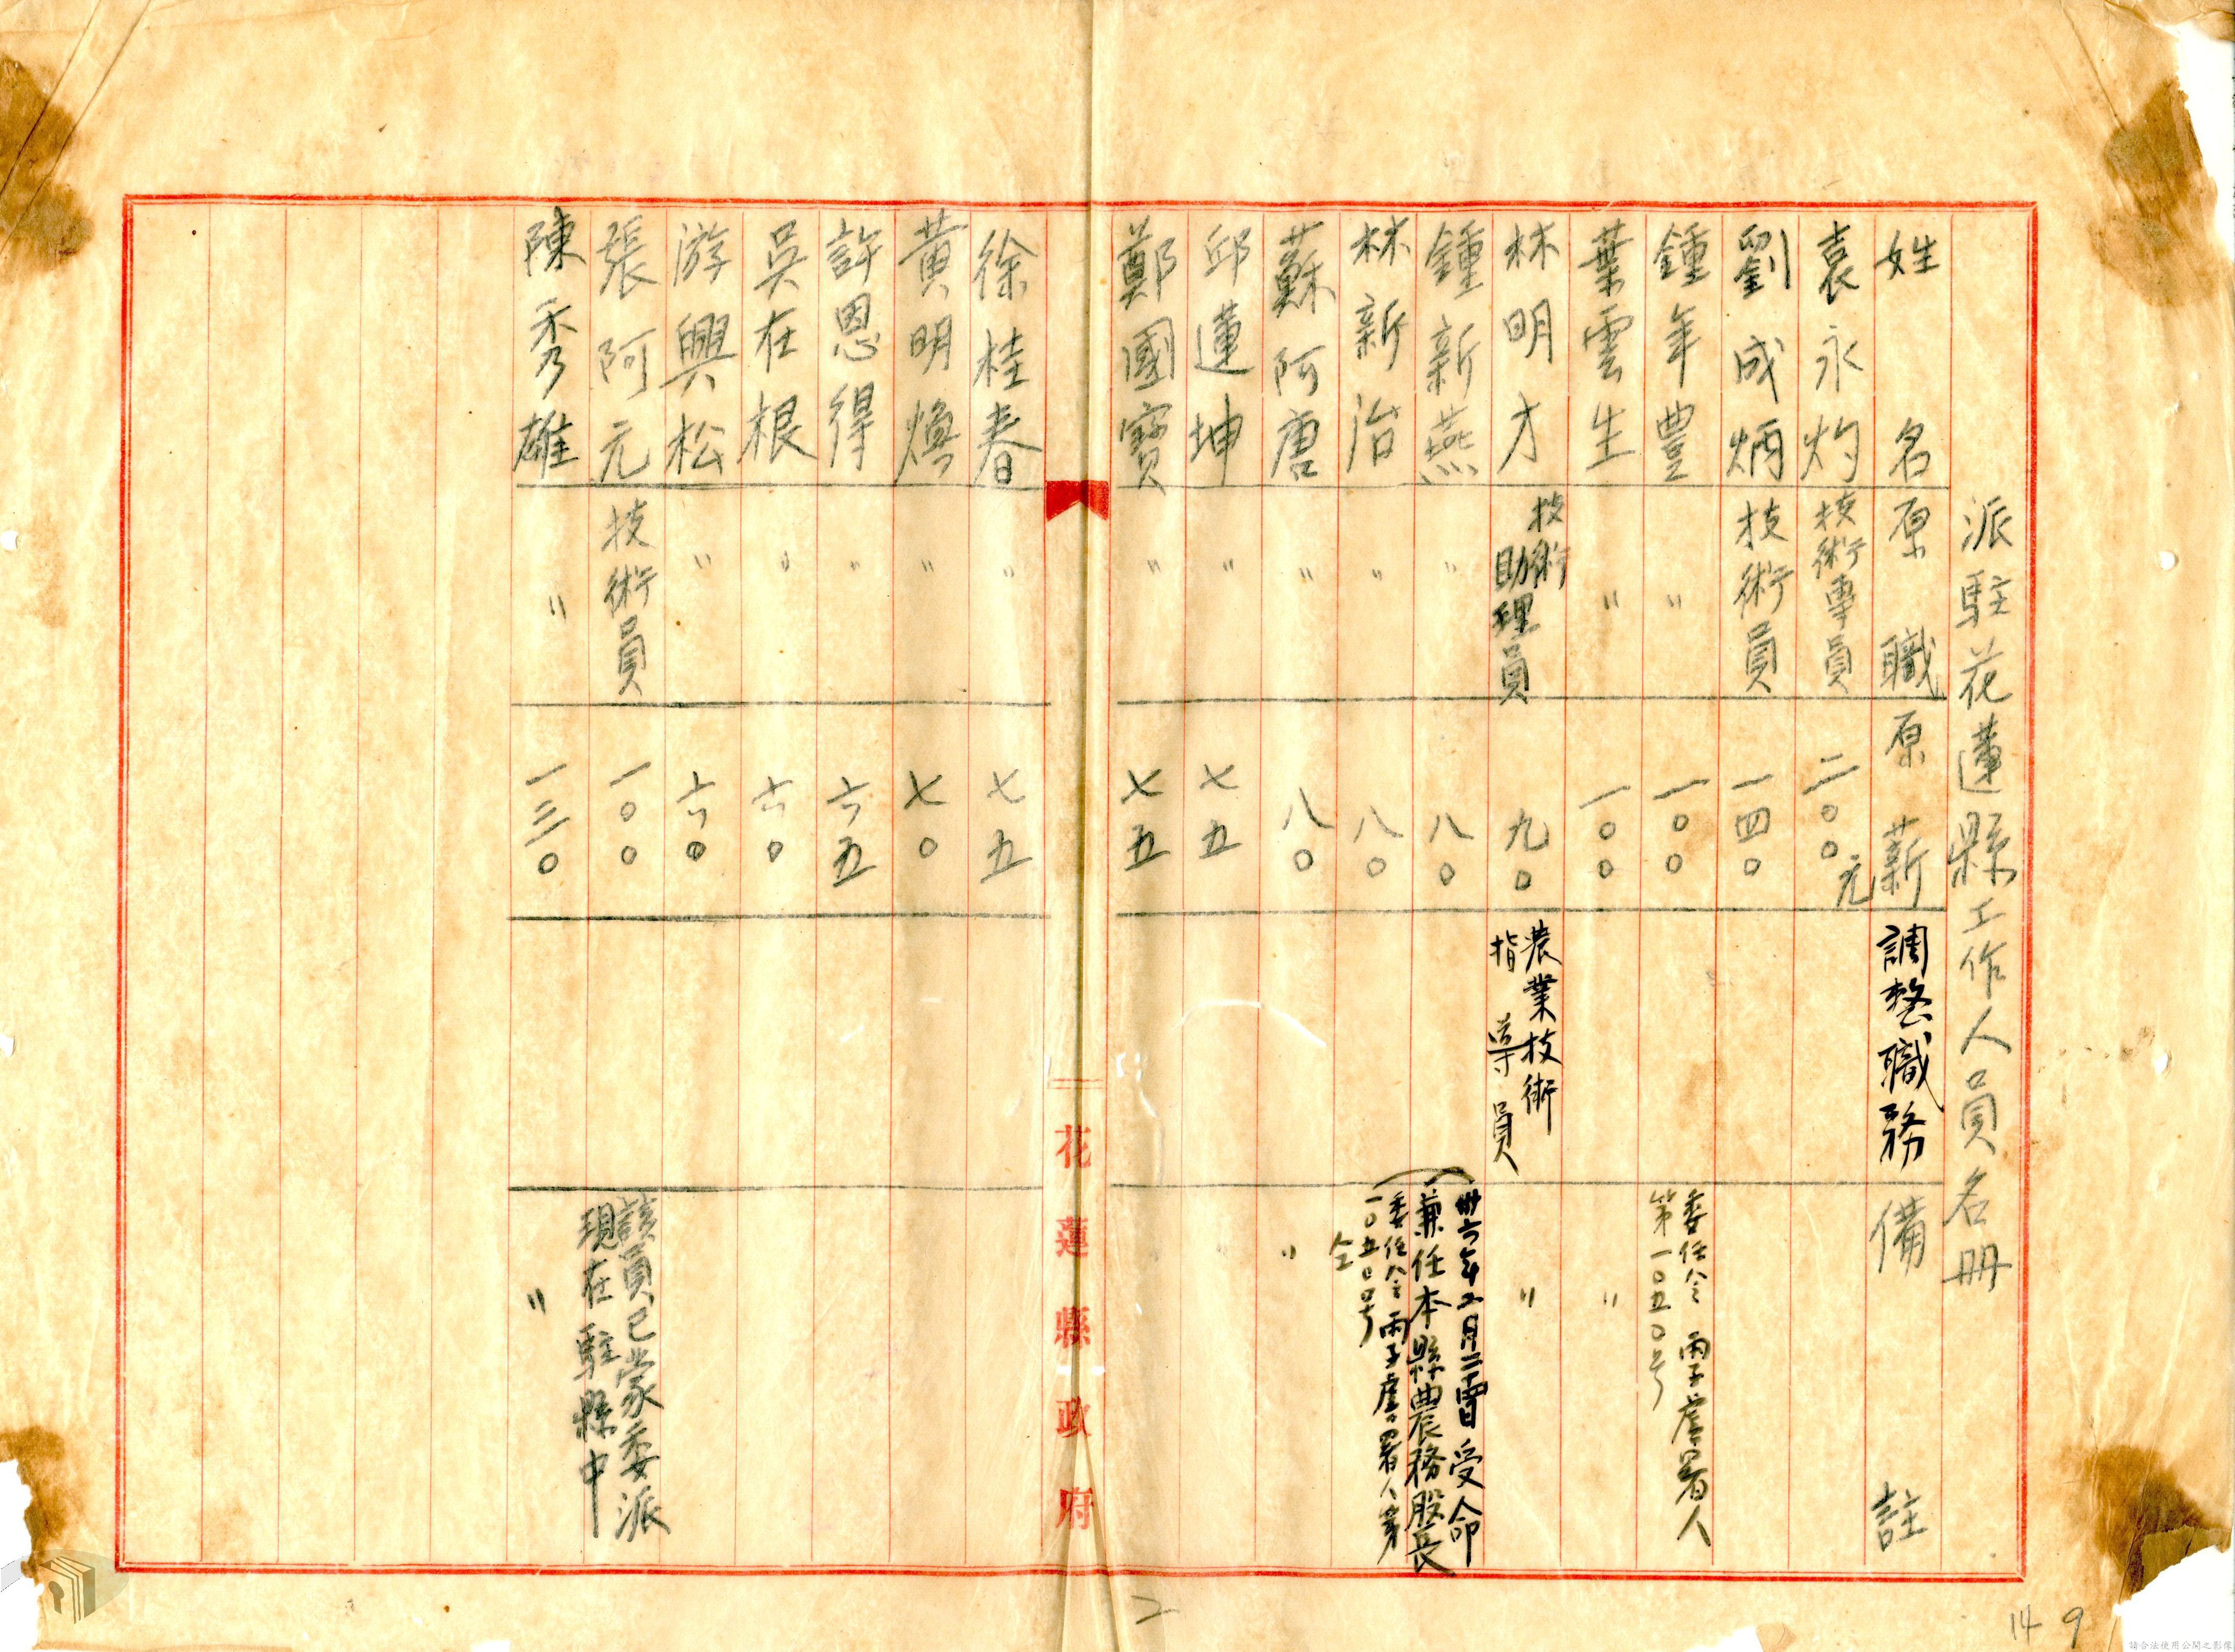 派駐花蓮縣工作人員名冊
姓名 原職 原薪 調整職務 備註
袁永灼 技術專員 二〇〇元
劉成炳 技術員 一四〇
鍾年豐 〃 一〇〇 委任令 丙子虞署人
第一〇五〇号
葉雲生 〃 一〇〇 〃
林明才 技術助理員 九〇 農業技術指導員 〃
鍾新燕 〃 八〇 卅六年五月二十四日受命
兼任本縣農務股長
林新治 〃 八〇 委任令 丙子虞署人第
一〇五〇〇号
令
蘇阿唐 〃 八〇 〃
邱蓮坤 〃 七五
鄭國寶 〃 七五
花蓮縣政府
徐桂春 〃 七五
黃明煥 〃 七〇
許恩得 〃 六五
吳在根 〃 六〇
游興松 〃 六〇
張阿元 技術員 一〇〇 該員已蒙委派
現在駐縣中
陳秀雄 〃 一三〇 〃
2
149
請合法使用公開之影像